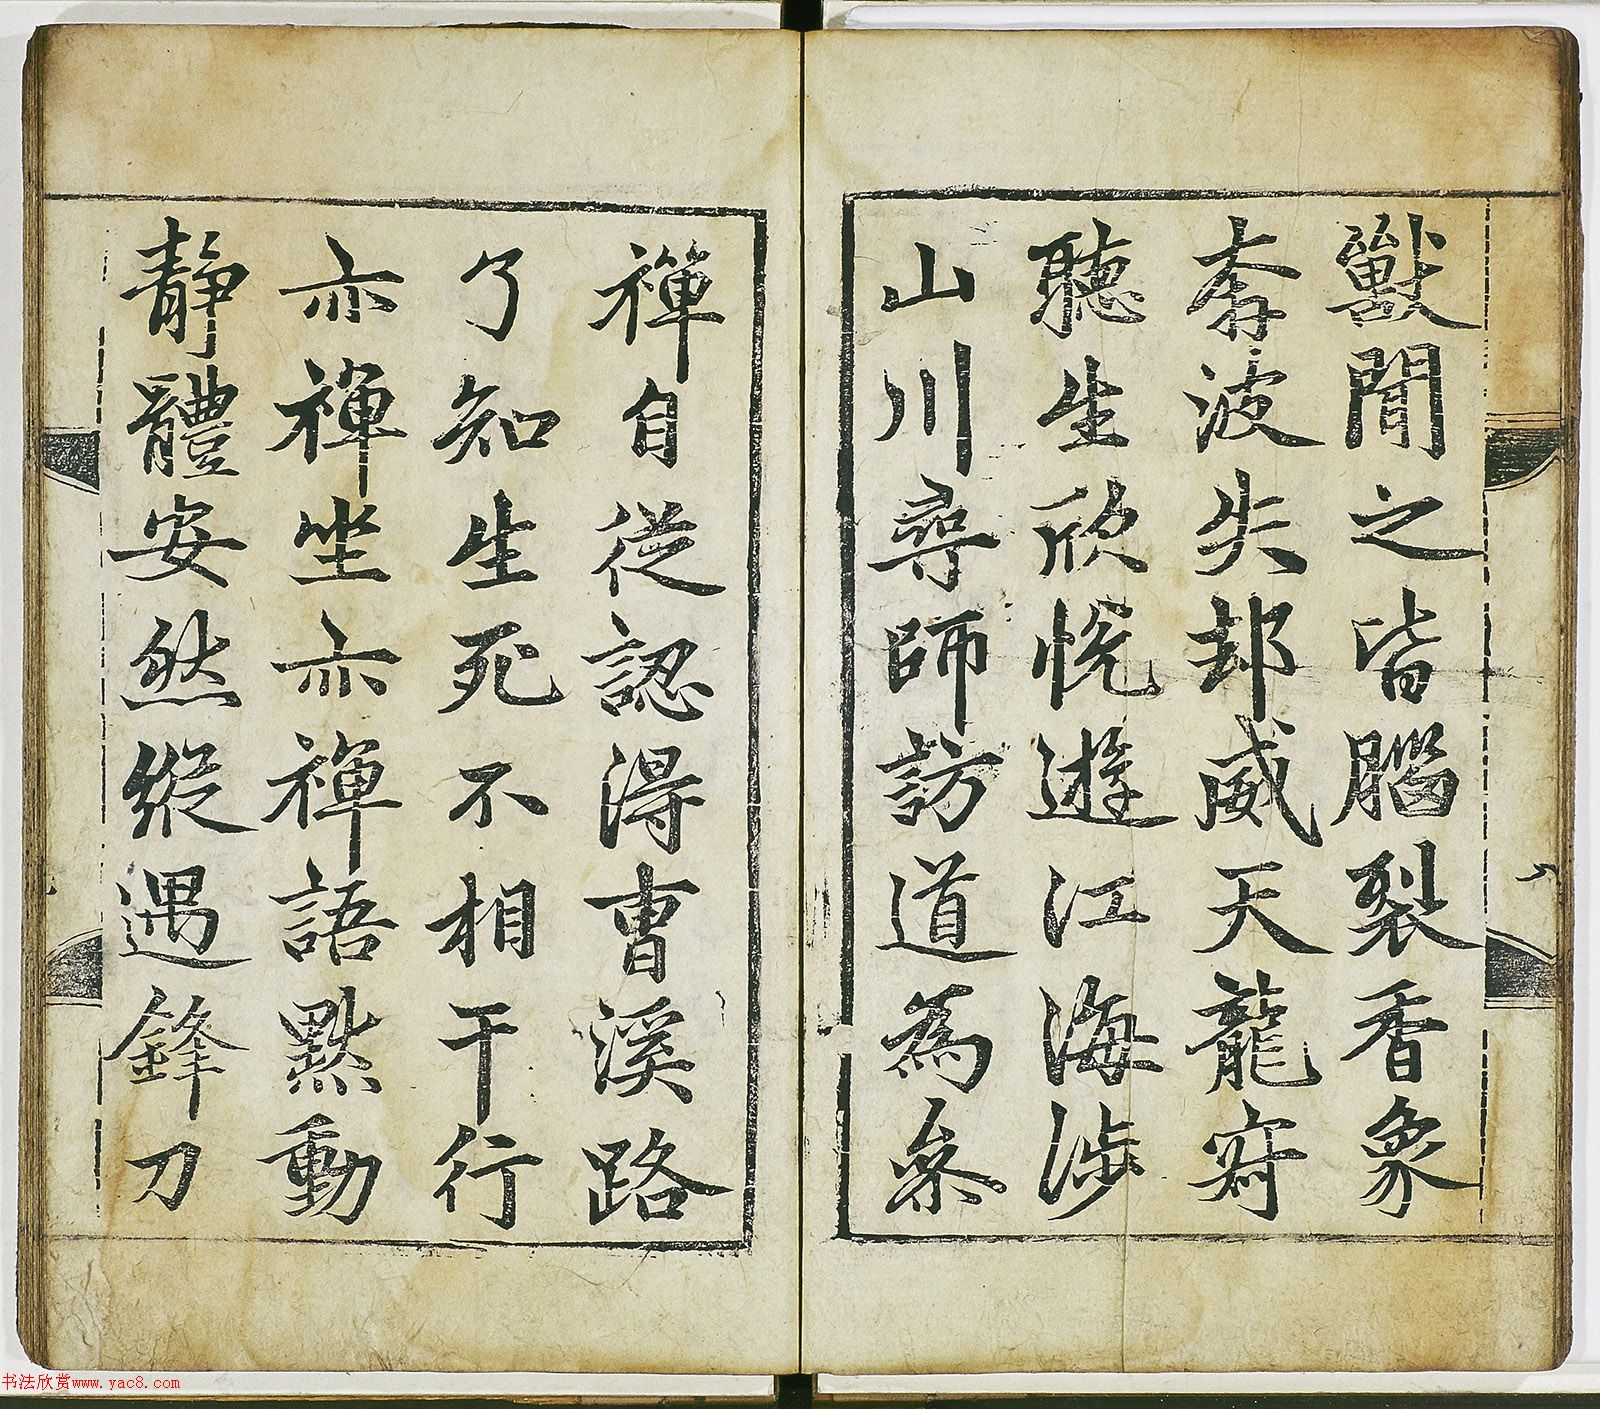 獸聞之皆腦裂香象
奔波失却威天龍寂
聽生欣恱遊江海涉
山川尋師訪道為叅
禪自從認得曹溪路
了知生死不相干行
亦禪坐亦禪語默動
靜體安然縱遇鋒刀
书法欣赏www.yac8.com